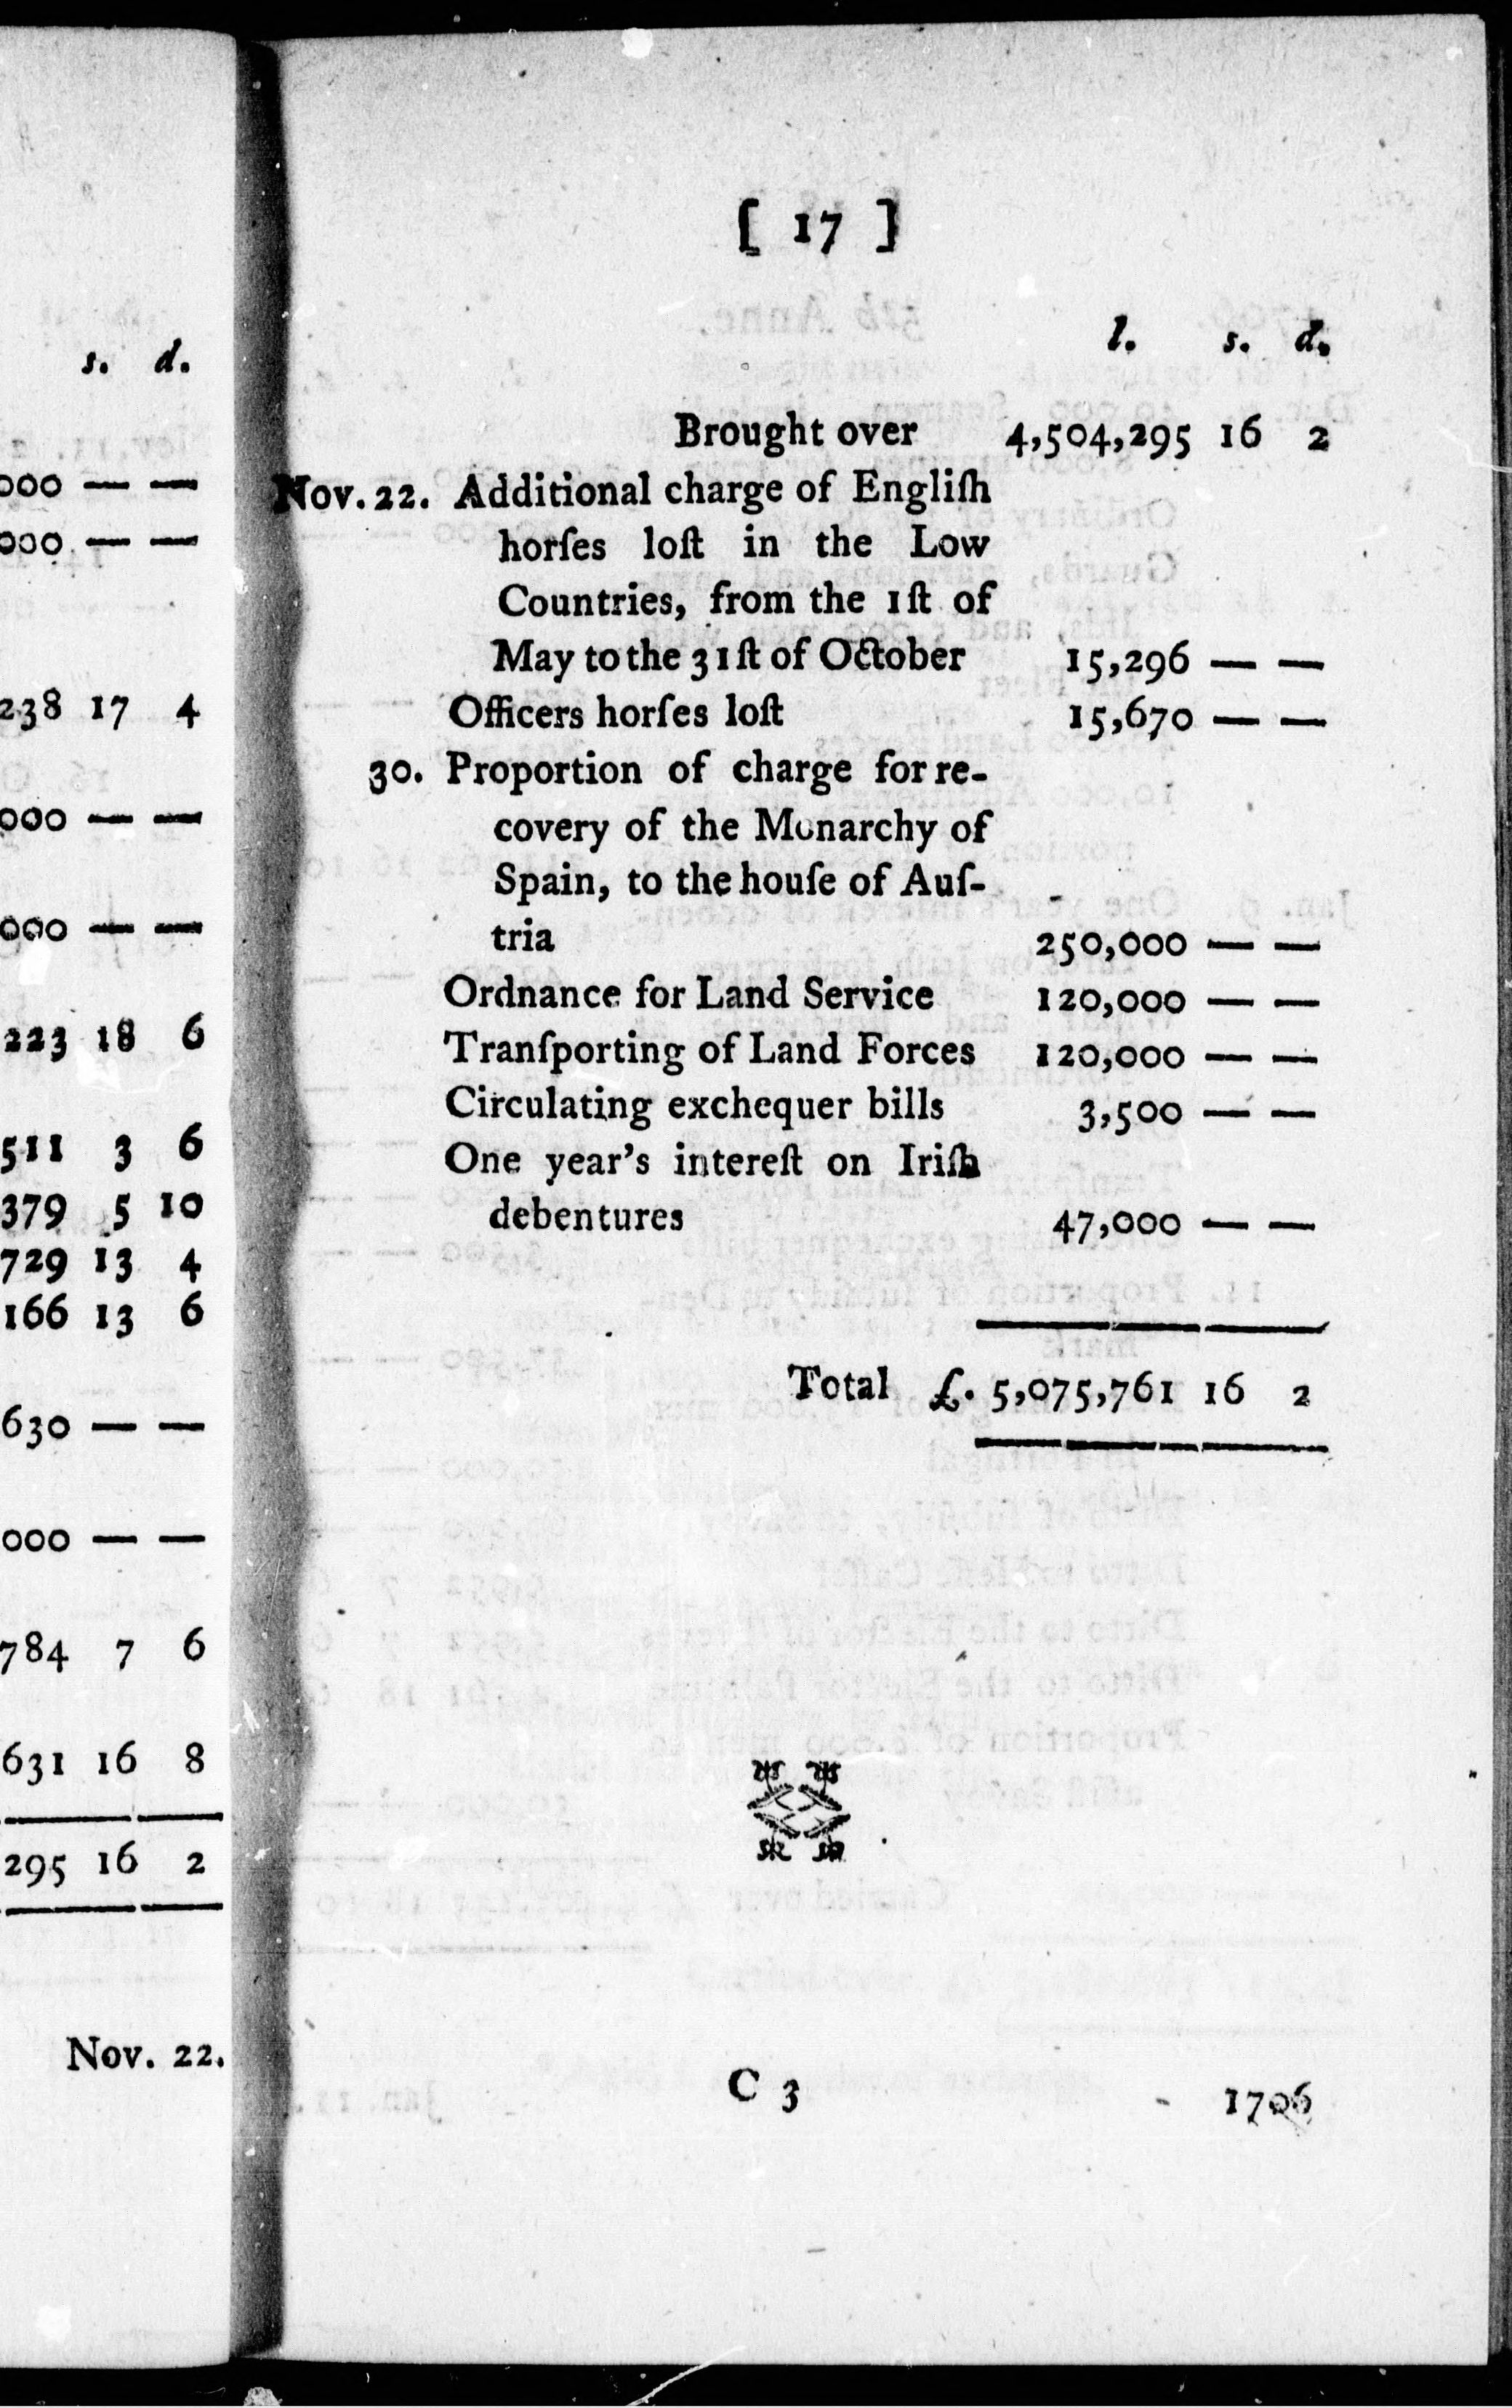 s. d.
000 — —
000 — —
238 17 4
000 — —
000 — —
223 18 6
511 3 6
379 5 10
729 13 4
166 13 6
630 — —
000 — —
784 7 6
631 16 8
295 16 2
Nov. 22.
[ 17 ]
l. s. d.
Brought over 4,504,295 16 2
Nov. 22. Additional charge of Engliſh
horſes loſt in the Low
Countries, from the 1ſt of
May to the 31ſt of October 15,296 — —
Officers horſes loſt 15,670 — —
30. Proportion of charge for re-
covery of the Monarchy of
Spain, to the houſe of Auſ-
tria 250,000 — —
Ordnance for Land Service 120,000 — —
Tranſporting of Land Forces 120,000 — —
Circulating exchequer bills 3,500 — —
One year's intereſt on Iriſh
debentures 47,000 — —
Total £. 5,075,761 16 2
C 3 1706